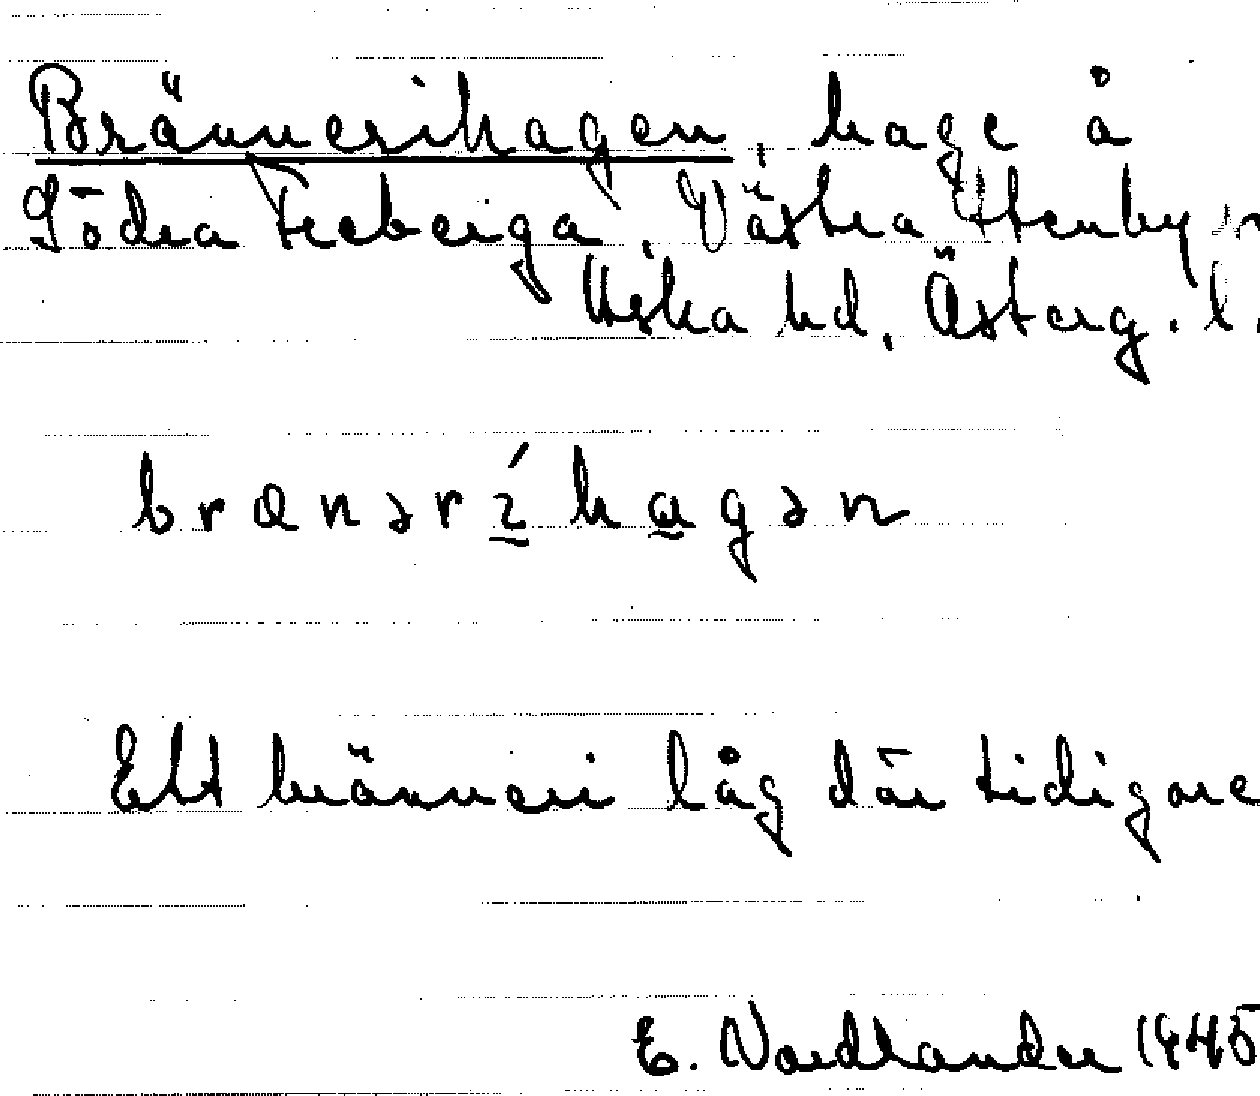 Brännerihagen, hage å
Södra Freberga, Västra Stenby
Aska hd, Österg. l.
brænəríhagən
Ett bränneri låg där tidigare
E. Nordlander 1945